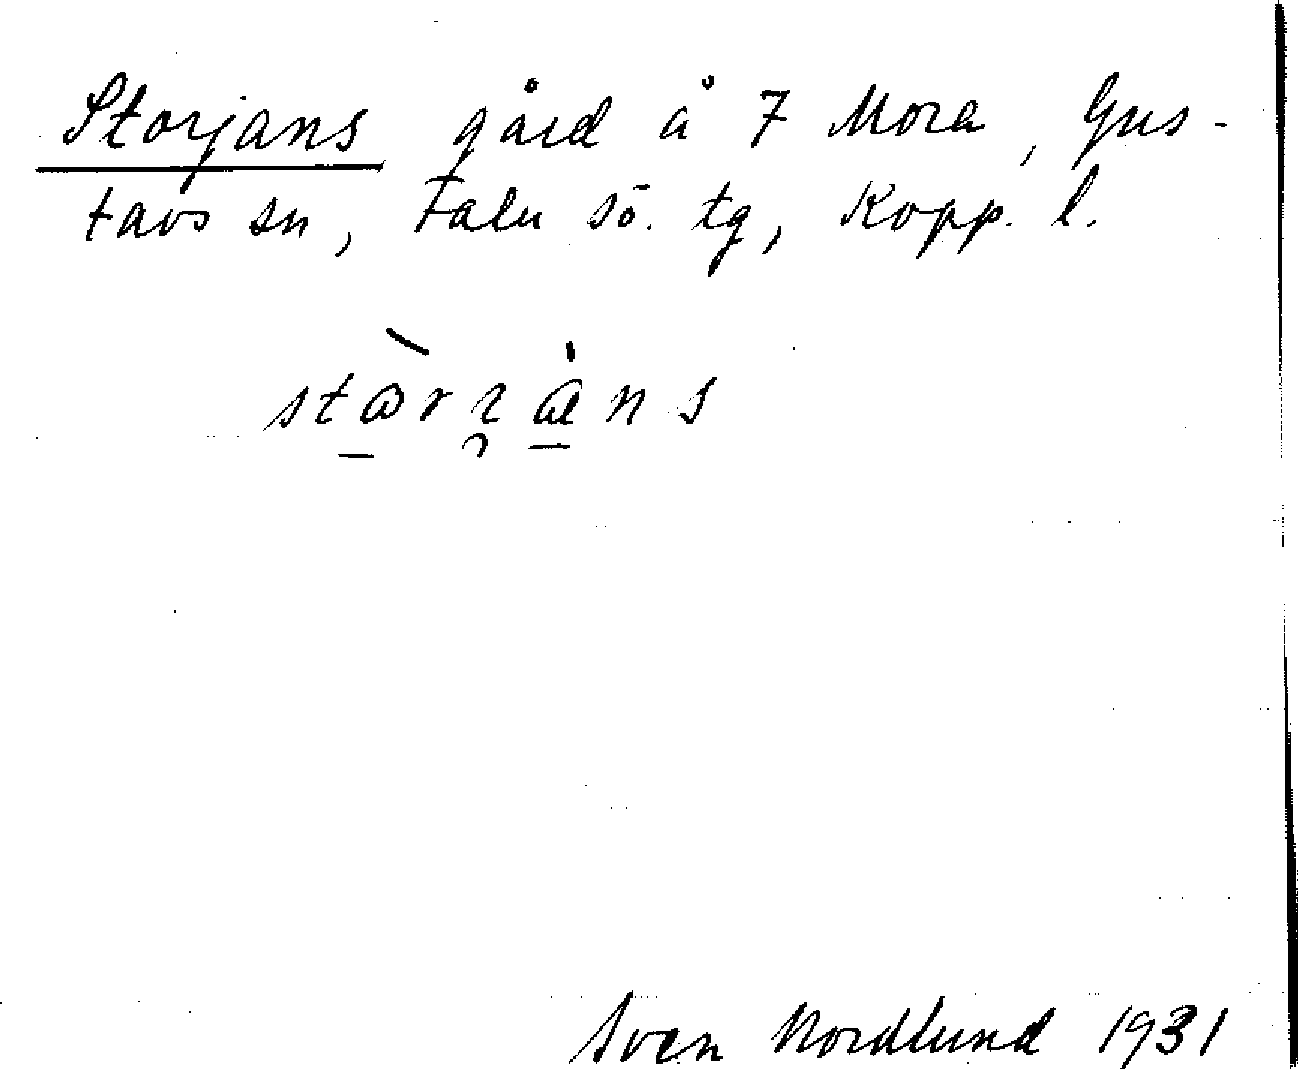 Storjans gård å 7 Mora, Gus-
tavs sn, Falu sö. tg, Kopp. l.
Sven Nordlund 1931